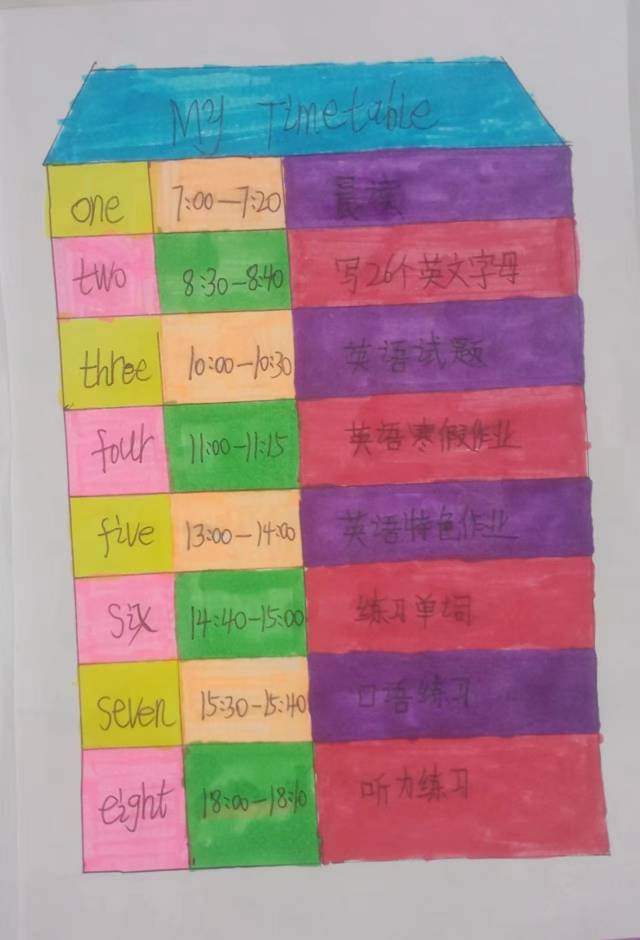 My Timetable
one 7:00—7:20 晨读
two 8:30—8:40 写26个英文字母
three 10:00—10:30 英语试题
four 11:00—11:15 英语寒假作业
five 13:00—14:00 英语特色作业
six 14:40—15:00 练习单词
seven 15:30—15:40 口语练习
eight 18:00—18:10 听力练习